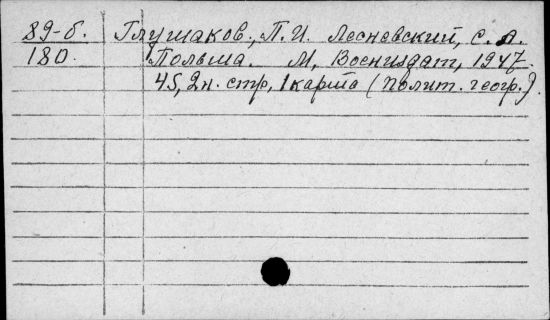 89-б. Глушаков, П.И. Лесневский, С.А.
180. Польша. М, Воениздат, 1947.
45, 2н. стр, 1 карта (Полит. геогр.).